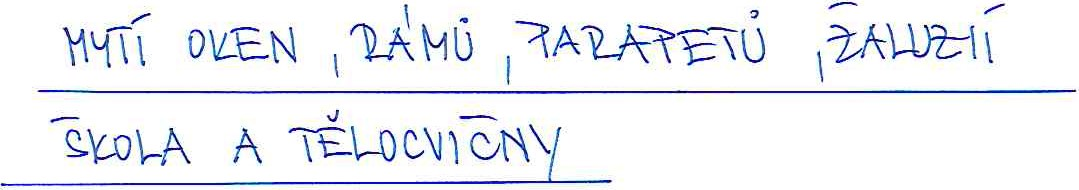 MYTÍ OKEN, RÁMŮ, PARAPETŮ, ŽALUZIÍ
ŠKOLA A TĚLOCVIČNY